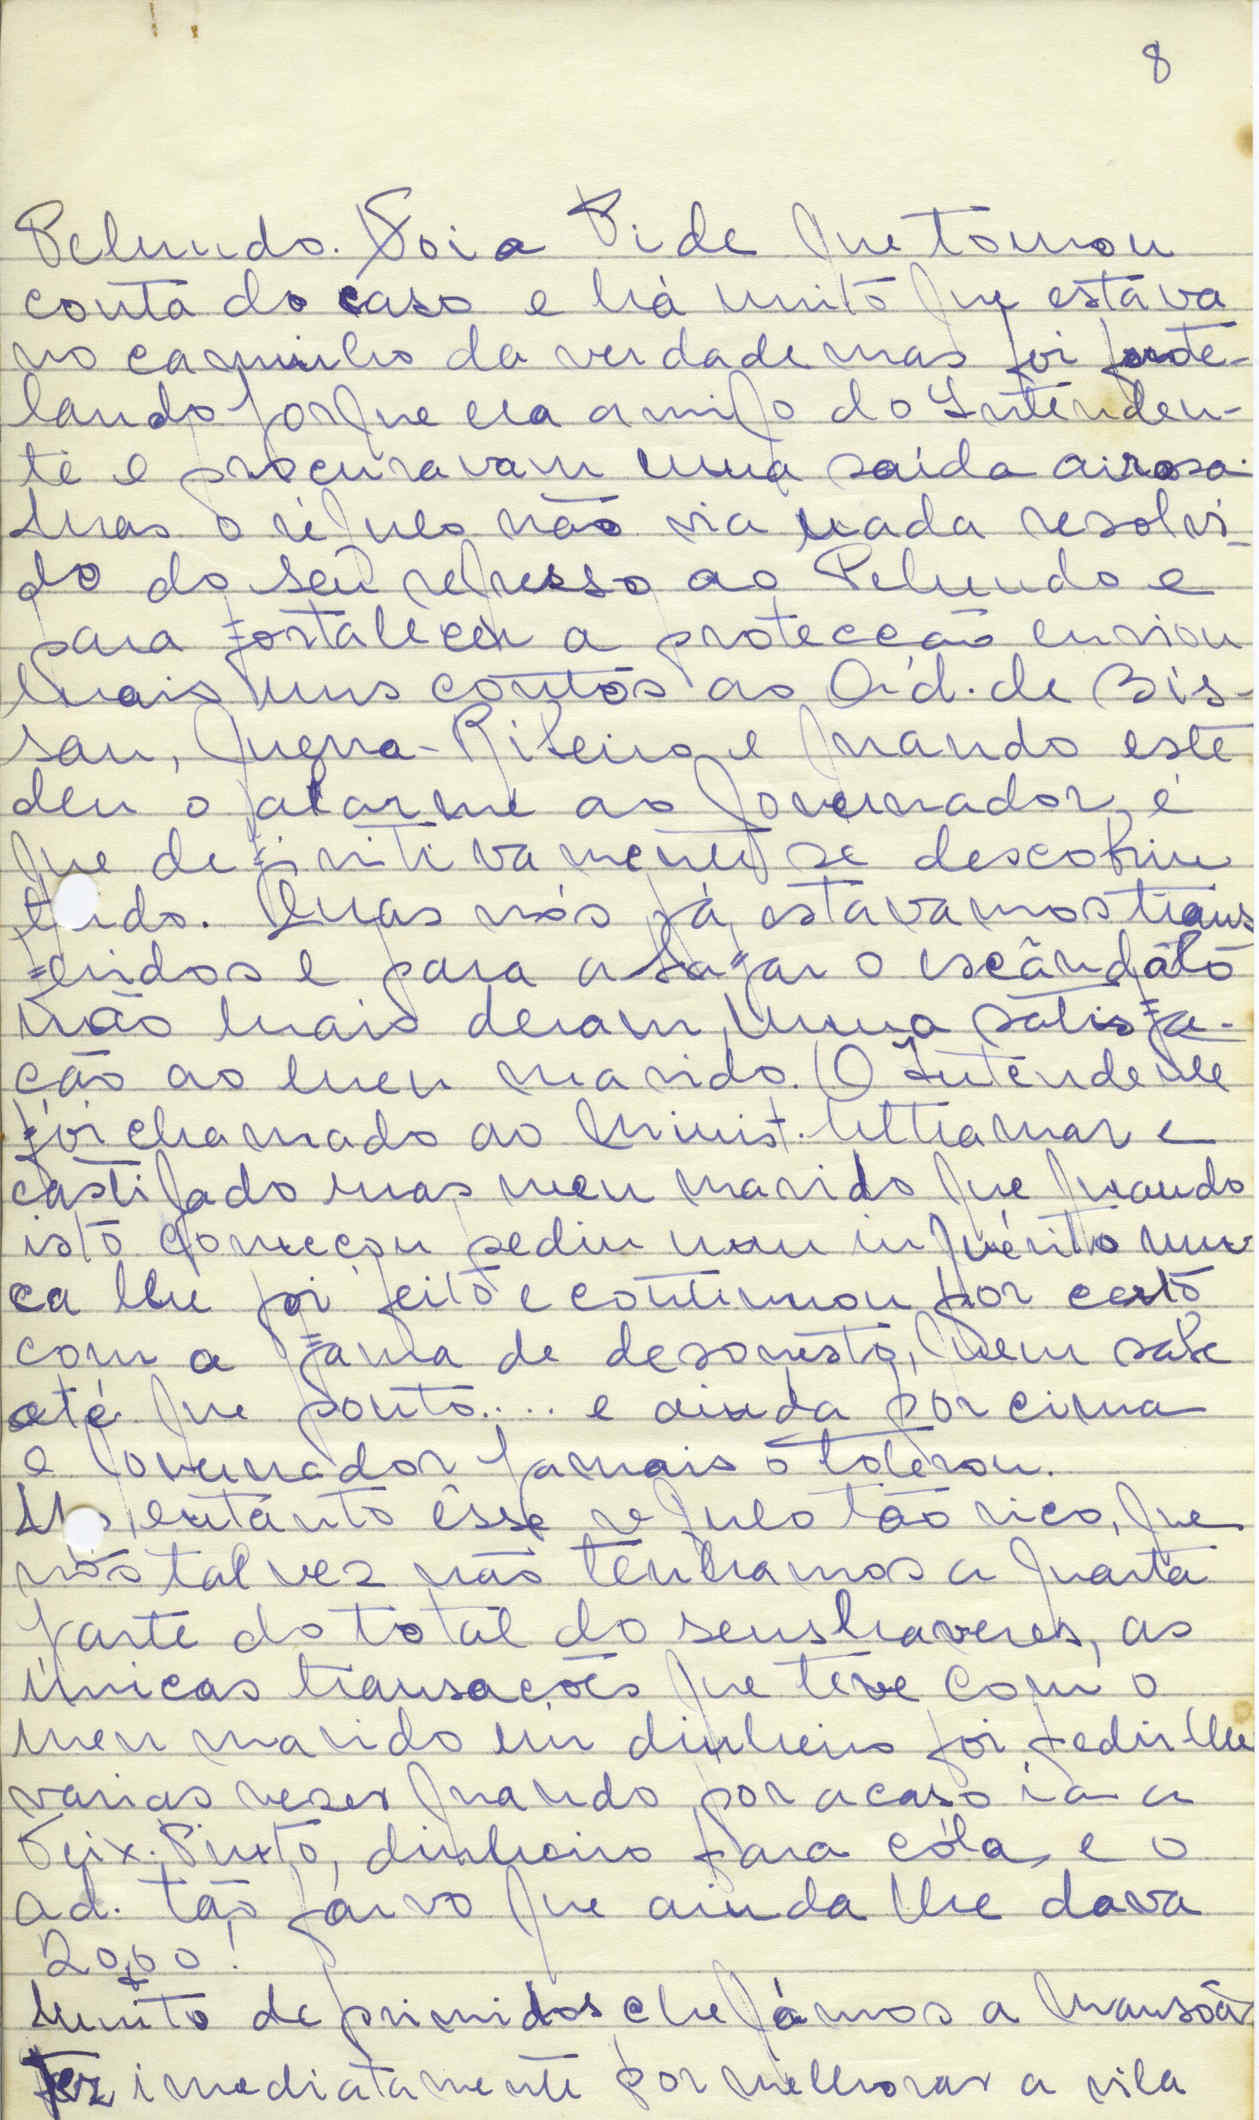 8
Pelundo. Foi a Pide que tomou
conta do caso e há muito que estava
no caminho da verdade mas foi prote-
lando porque era amigo do Intenden-
te e procuravam uma saída airosa.
Mas o régulo não via nada resolvi-
do do seu regresso ao Pelundo e
para fortalecer a protecção enviou
mais uns contos ao Ad. de Bis-
sau, Guerra-Ribeiro e quando este
deu o alarme ao Governador, é
que definitivamente se descobriu
tudo. Mas nós já estavamos trans
feridos e para abafar o escândalo
não mais deram uma satisfa-
ção ao meu marido. O Intendente
foi chamado ao Minist. Ultramar e
castigado mas meu marido que quando
isto começou pediu um inquérito nun
ca lhe foi feito e continuou por certo
com a fama de desonesto, quem sabe
até que ponto.... e ainda por cima
o Governador jamais o tolerou.
No entanto êsse regulo tão rico, que
nós talvez não tenhamos a quarta
parte do total do seus haveres, as
únicas transações que teve com o
meu marido em dinheiro foi pedir lhe
varias vezes quando por acaso ia a
Teix. Pinto, dinheiro para cóla, e o
ad. tão párvo que ainda lhe dava
20,00!
Muito deprimidos chegámos a Mansôa
Fez imediatamente por melhorar a vila